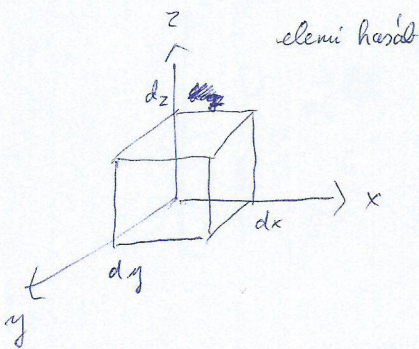 z
elemi hasáb
dz
x
dx
dy
y